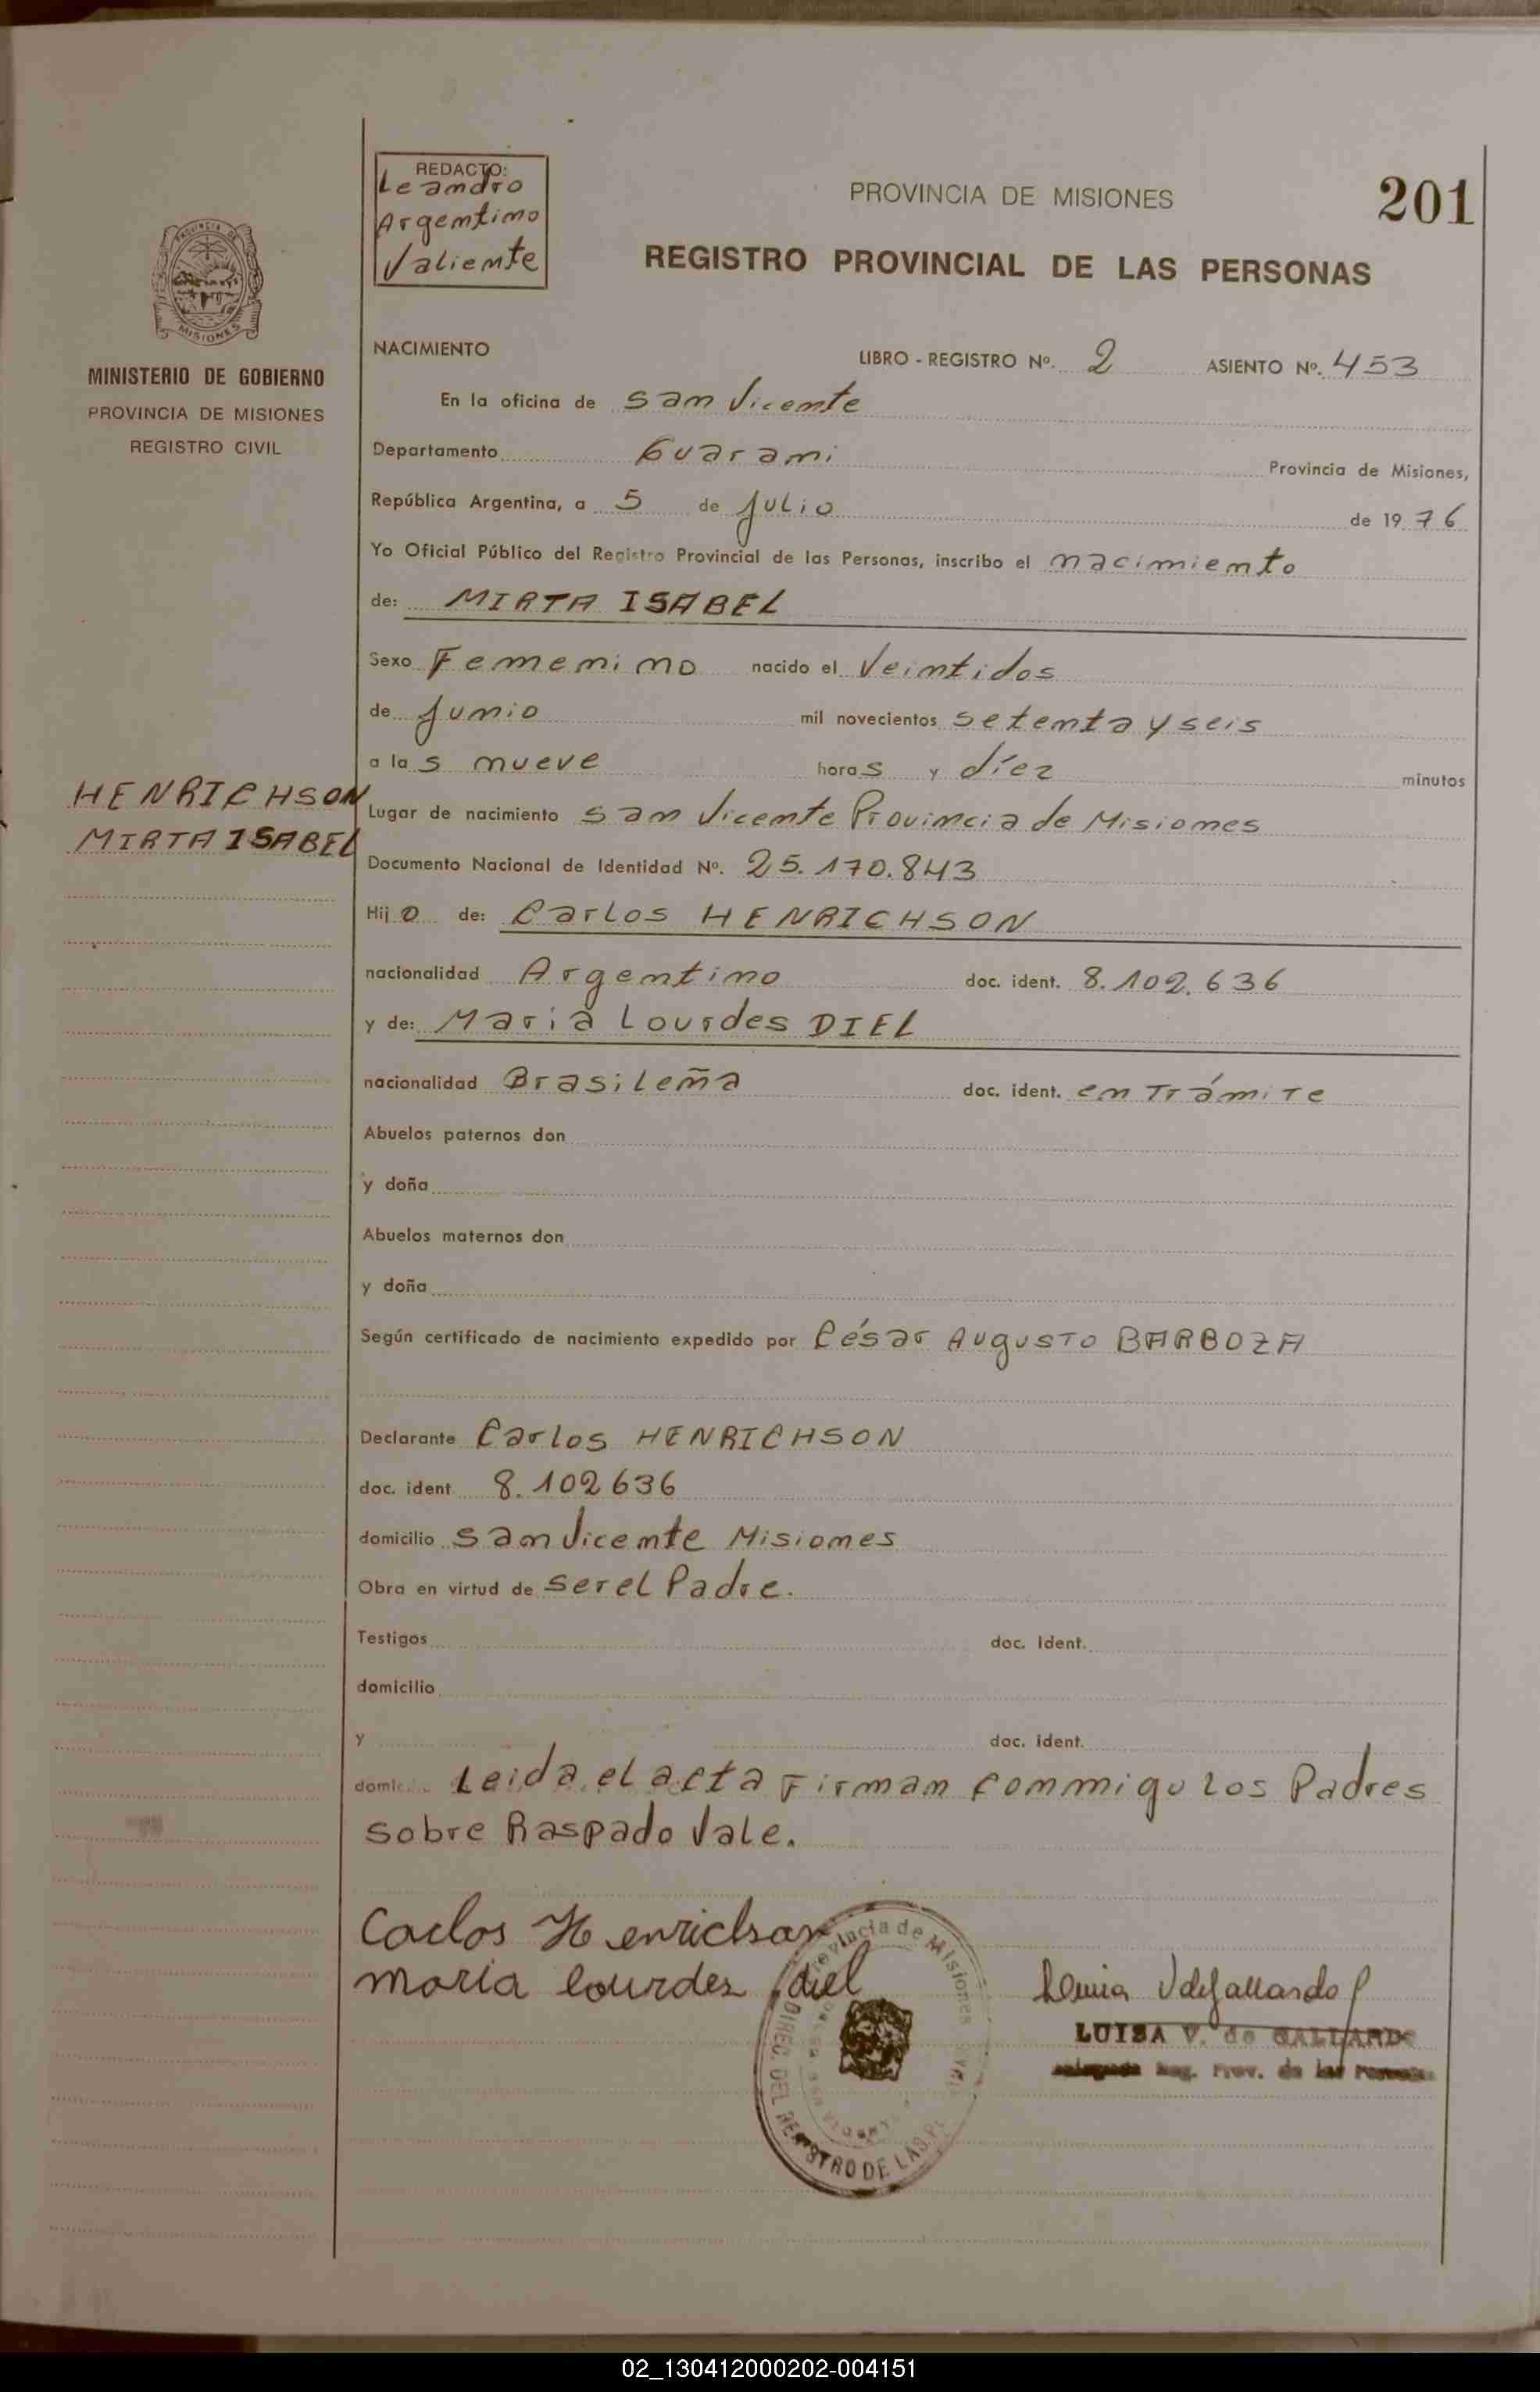 REDACTO:
Leandro
Argentino
Valiente
PROVINCIA DE MISIONES
201
REGISTRO PROVINCIAL DE LAS PERSONAS
MISIONES
MINISTERIO DE GOBIERNO
PROVINCIA DE MISIONES
REGISTRO CIVIL
NACIMIENTO
LIBRO - REGISTRO Nº. 2 ASIENTO Nº. 453
En la oficina de San Vicente
Departamento Guarani Provincia de Misiones,
República Argentina, a 5 de Julio de 1976
Yo Oficial Público del Registro Provincial de las Personas, inscribo el nacimiento
de: MIRTA ISABEL
Sexo Femenino nacido el Veintidos
de Junio mil novecientos setenta y seis
a las nueve horas y díez minutos
HENRICHSON
MIRTA ISABEL
Lugar de nacimiento San Vicente Provincia de Misiones
Documento Nacional de Identidad Nº. 25.170.843
Hija de: Carlos HENRICHSON
nacionalidad Argentino doc. ident. 8.102.636
y de: Maria Lourdes DIEL
nacionalidad Brasileña doc. ident. en Trámite
Abuelos paternos don
y doña
Abuelos maternos don
y doña
Según certificado de nacimiento expedido por César Augusto BARBOZA
Declarante Carlos HENRICHSON
doc. ident. 8.102636
domicilio San Vicente Misiones
Obra en virtud de ser el Padre.
Testigos doc. ident.
domicilio
y doc. ident.
Leida el acta Firman conmigo los Padres
sobre Raspado Vale.
Carlos Henrichson
maria lourdes diel
Provincia de Misiones
DIREC. DEL REGISTRO DE LAS
LUISA V. de GALLARDO
Reg. Prov. de las
02_130412000202-004151